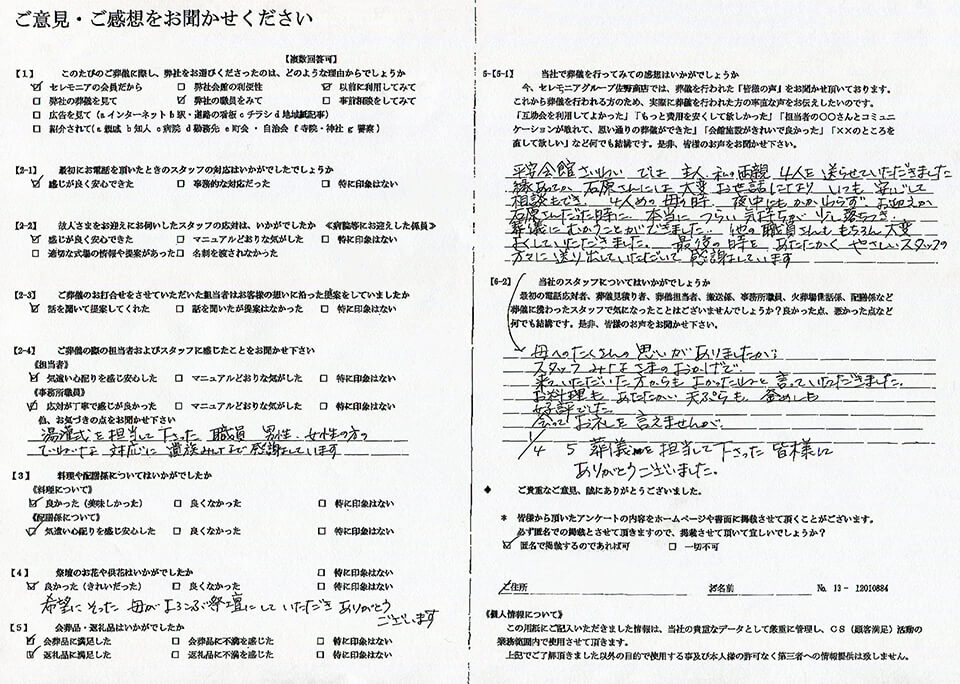 ご意見・ご感想をお聞かせください
【複数回答可】
【1】 このたびのご葬儀に際し、弊社をお選びくださったのは、どのような理由からでしょうか
☑ セレモニアの会員だから □ 弊社会館の利便性 ☑ 以前に利用してみて
□ 弊社の葬儀を見て ☑ 弊社の職員をみて □ 事前相談をしてみて
□ 広告を見て(a インターネット b 駅・道路の看板 c チラシ d 地域紙記事)
□ 紹介されて(a 親戚 b 知人 c 病院 d 勤務先 e 町会・自治会 f 寺院・神社 g 警察)
【2-1】 最初にお電話を頂いたときのスタッフの対応はいかがでしたでしょうか
☑ 感じが良く安心できた □ 事務的な対応だった □ 特に印象はない
【2-2】 故人さまをお迎えにお伺いしたスタッフの応対は、いかがでしたか ≪病院等にお迎えした係員≫
☑ 感じが良く安心できた □ マニュアルどおりな気がした □ 特に印象はない
□ 適切な式場の情報や提案があった □ 名刺を渡されなかった
【2-3】 ご葬儀のお打合せをさせていただいた担当者はお客様の想いに沿った提案をしていましたか
☑ 話を聞いて提案してくれた □ 話を聞いたが提案はなかった □ 特に印象はない
【2-4】 ご葬儀の際の担当者およびスタッフに感じたことをお聞かせ下さい
《担当者》
☑ 気遣い心配りを感じ安心した □ マニュアルどおりな気がした □ 特に印象はない
《事務所職員》
☑ 応対が丁寧で感じが良かった □ マニュアルどおりな気がした □ 特に印象はない
他、お気づきの点をお聞かせ下さい
湯灌式を担当して下さった 職員 男性・女性の方の
ていねいな 対応に 遺族みんなで感謝しています
【3】 料理や配膳係についてはいかがでしたか
《料理について》
☑ 良かった(美味しかった) □ 良くなかった □ 特に印象はない
《配膳係について》
☑ 気遣い心配りを感じ安心した □ 良くなかった □ 特に印象はない
【4】 祭壇のお花や供花はいかがでしたか □ 特に印象はない
☑ 良かった(きれいだった) □ 良くなかった □ 特に印象はない
希望にそった 母がよろこぶ祭壇にしていただき ありがとう
ございます
【5】 会葬品・返礼品はいかがでしたか
☑ 会葬品に満足した □ 会葬品に不満を感じた □ 特に印象はない
☑ 返礼品に満足した □ 返礼品に不満を感じた □ 特に印象はない
5-【5-1】 当社で葬儀を行ってみての感想はいかがでしょうか
今、セレモニアグループ佐野商店では、葬儀を行われた「皆様の声」をお聞かせ頂いております。
これから葬儀を行われる方のため、実際に葬儀を行われた方の率直なお声をお伝えしたいのです。
「互助会を利用してよかった」「もっと費用を安くして欲しかった」「担当者の○○さんとコミュニ
ケーションが取れて、思い通りの葬儀ができた」「会館施設がきれいで良かった」「××のところを
直して欲しい」など何でも結構です。是非、皆様のお声をお聞かせ下さい。
平安会館さいわい では 主人、私の両親 4人を送らせていただきました
縁あってか 石原さんには 大変 お世話になり いつも 安心して
相談もでき、4人めの母の時、夜中にもかかわらず お迎えが
石原さんだった時に、本当に つらい気持ちが 少し落ちつき
葬儀にむかうことができました。他の職員さんももちろん大変
よくしていただきました。最後の時を あたたかく やさしいスタッフの
方々に送り出していただいて 感謝しています
【6-2】 当社のスタッフについてはいかがでしょうか
最初の電話応対者、葬儀見積り者、葬儀担当者、搬送係、事務所職員、火葬場世話係、配膳係など
葬儀に携わったスタッフで気になったことはございませんでしょうか?良かった点、悪かった点など
何でも結構です。是非、皆様のお声をお聞かせ下さい。
母へのたくさんの思いがありましたが、
スタッフ みなさまの おかげで、
来ていただいた方からも よかったわねと 言っていただきました。
お料理も あたたかい 天ぷらも 釜めしも
好評でした
会って お礼を 言えませんが、
1/4 5 葬儀を担当して下さった 皆様に
ありがとうございました。
◆ ご貴重なご意見、誠にありがとうございました。
* 皆様から頂いたアンケートの内容をホームページや書面に掲載させて頂くことがございます。
必ず匿名での掲載とさせて頂きますので、掲載させて頂いて宜しいでしょうか?
☑ 匿名で掲載するのであれば可 □ 一切不可
ご住所 お名前 No. 13- 12010884
《個人情報について》
この用紙にご記入いただきました情報は、当社の貴重なデータとして厳重に管理し、CS(顧客満足)活動の
業務範囲内で使用させて頂きます。
上記でご了解頂きました以外の目的で使用する事及び本人様の許可なく第三者への情報提供は致しません。